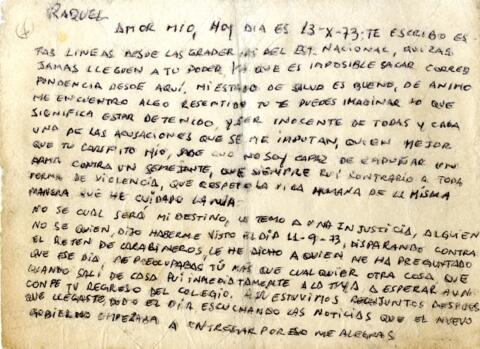 RAQUEL
AMOR MIO, HOY DIA ES 13-X-73; TE ESCRIBO ES-
TAS LINEAS DESDE LAS GRADERIAS DEL EST. NACIONAL, QUIZAS
JAMAS LLEGUEN A TU PODER, YA QUE ES IMPOSIBLE SACAR CORRES
PONDENCIA DESDE AQUÍ. MI ESTADO DE SALUD ES BUENO, DE ANIMO
ME ENCUENTRO ALGO RESENTIDO TU TE PUEDES IMAGINAR LO QUE
SIGNIFICA ESTAR DETENIDO, Y SER INOCENTE DE TODAS Y CADA
UNA DE LAS ACUSACIONES QUE SE ME IMPUTAN, QUIEN MEJOR
QUE TU CARIÑITO MIO, SABE QUE NO SOY CAPAZ DE EMPUÑAR UN
ARMA CONTRA UN SEMEJANTE, QUE SIEMPRE FUI CONTRARIO A TODA
FORMA DE VIOLENCIA, QUE RESPETO LA VIDA HUMANA DE LA MISMA
MANERA QUE HE CUIDADO LA MIA.
NO SE CUAL SERÁ MI DESTINO, LE TEMO A UNA INJUSTICIA, ALGUIEN
NO SE QUIEN, DIJO HABERME VISTO EL DIA 11-9-73, DISPARANDO CONTRA
EL RETEN DE CARABINEROS, LE HE DICHO A QUIEN ME HA PREGUNTADO
QUE ESE DIA, ME PREOCUPABAS TÚ MAS QUE CUALQUIER OTRA COSA QUE
CUANDO SALÍ DE CASA FUI INMEDIATAMENTE A LA TUYA A ESPERAR
TU REGRESO DEL COLEGIO. ESTUVIMOS JUNTOS DESPUES
QUE LLEGASTE, TODO EL DIA ESCUCHANDO LAS NOTICIAS QUE EL NUEVO
GOBIERNO EMPEZABA A ENTREGAR POR ESO ME ALEGRAS